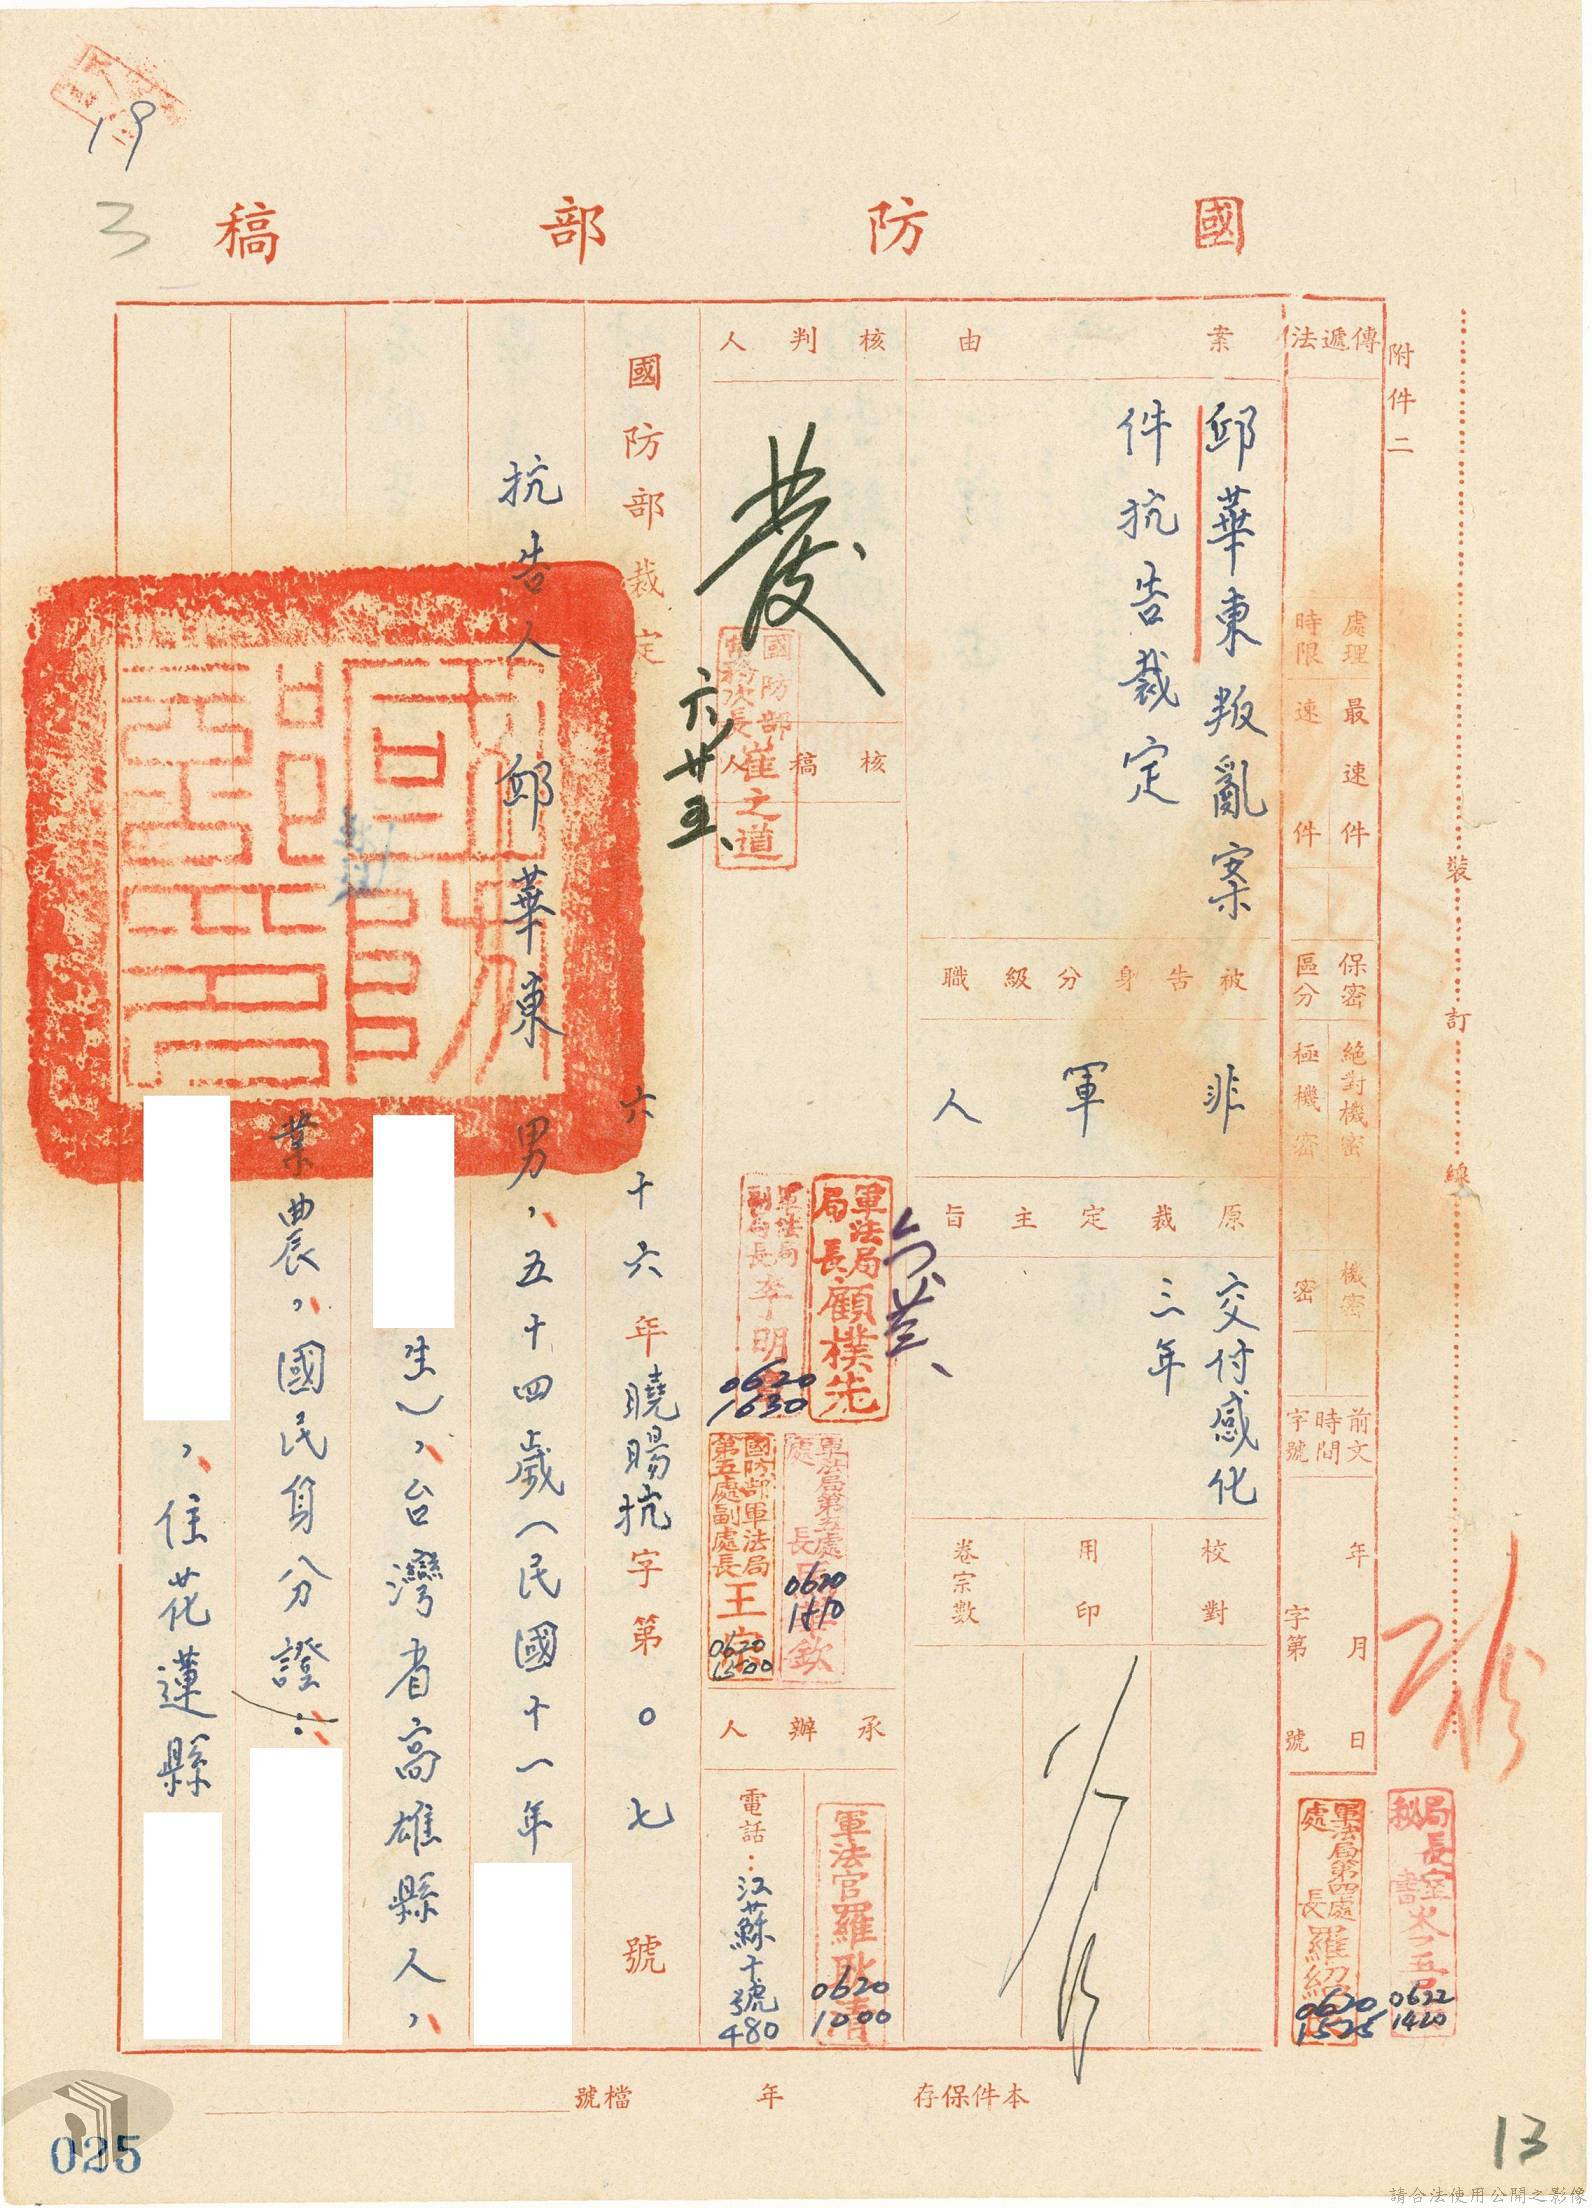 19
3
國防部稿
附件二
裝訂線
傳遞法
處理時限
最速件
速件
保密區分
絕對機密
極機密
機密
密
前文時間字號
年月日
字第號
案由
邱華東叛亂案
件抗告裁定
被告身分級職
非軍人
原裁定主旨
交付感化
三年
校對
用印
卷宗數
核判人
發
六、廿五、
國防部常務次長崔之道
核稿人
軍法局局長顧樸先
軍法局副局長李明
0620
1630
軍法局第五處處長
欽
0620
國防部軍法局第五處副處長王
0620
1500
承辦人
軍法官羅耿清
0620
1000
電話：江蘇十號
480
局長室秘書
0622
1420
軍法局第四處處長羅紹
0620
1525
國防部裁定
六十六年曉賜抗字第〇七號
抗告人邱華東男，五十四歲（民國十一年
生），台灣省高雄縣人，
業農，國民身分證：
，住花蓮縣
本件保存年
檔號
025
13
請合法使用公開之影像